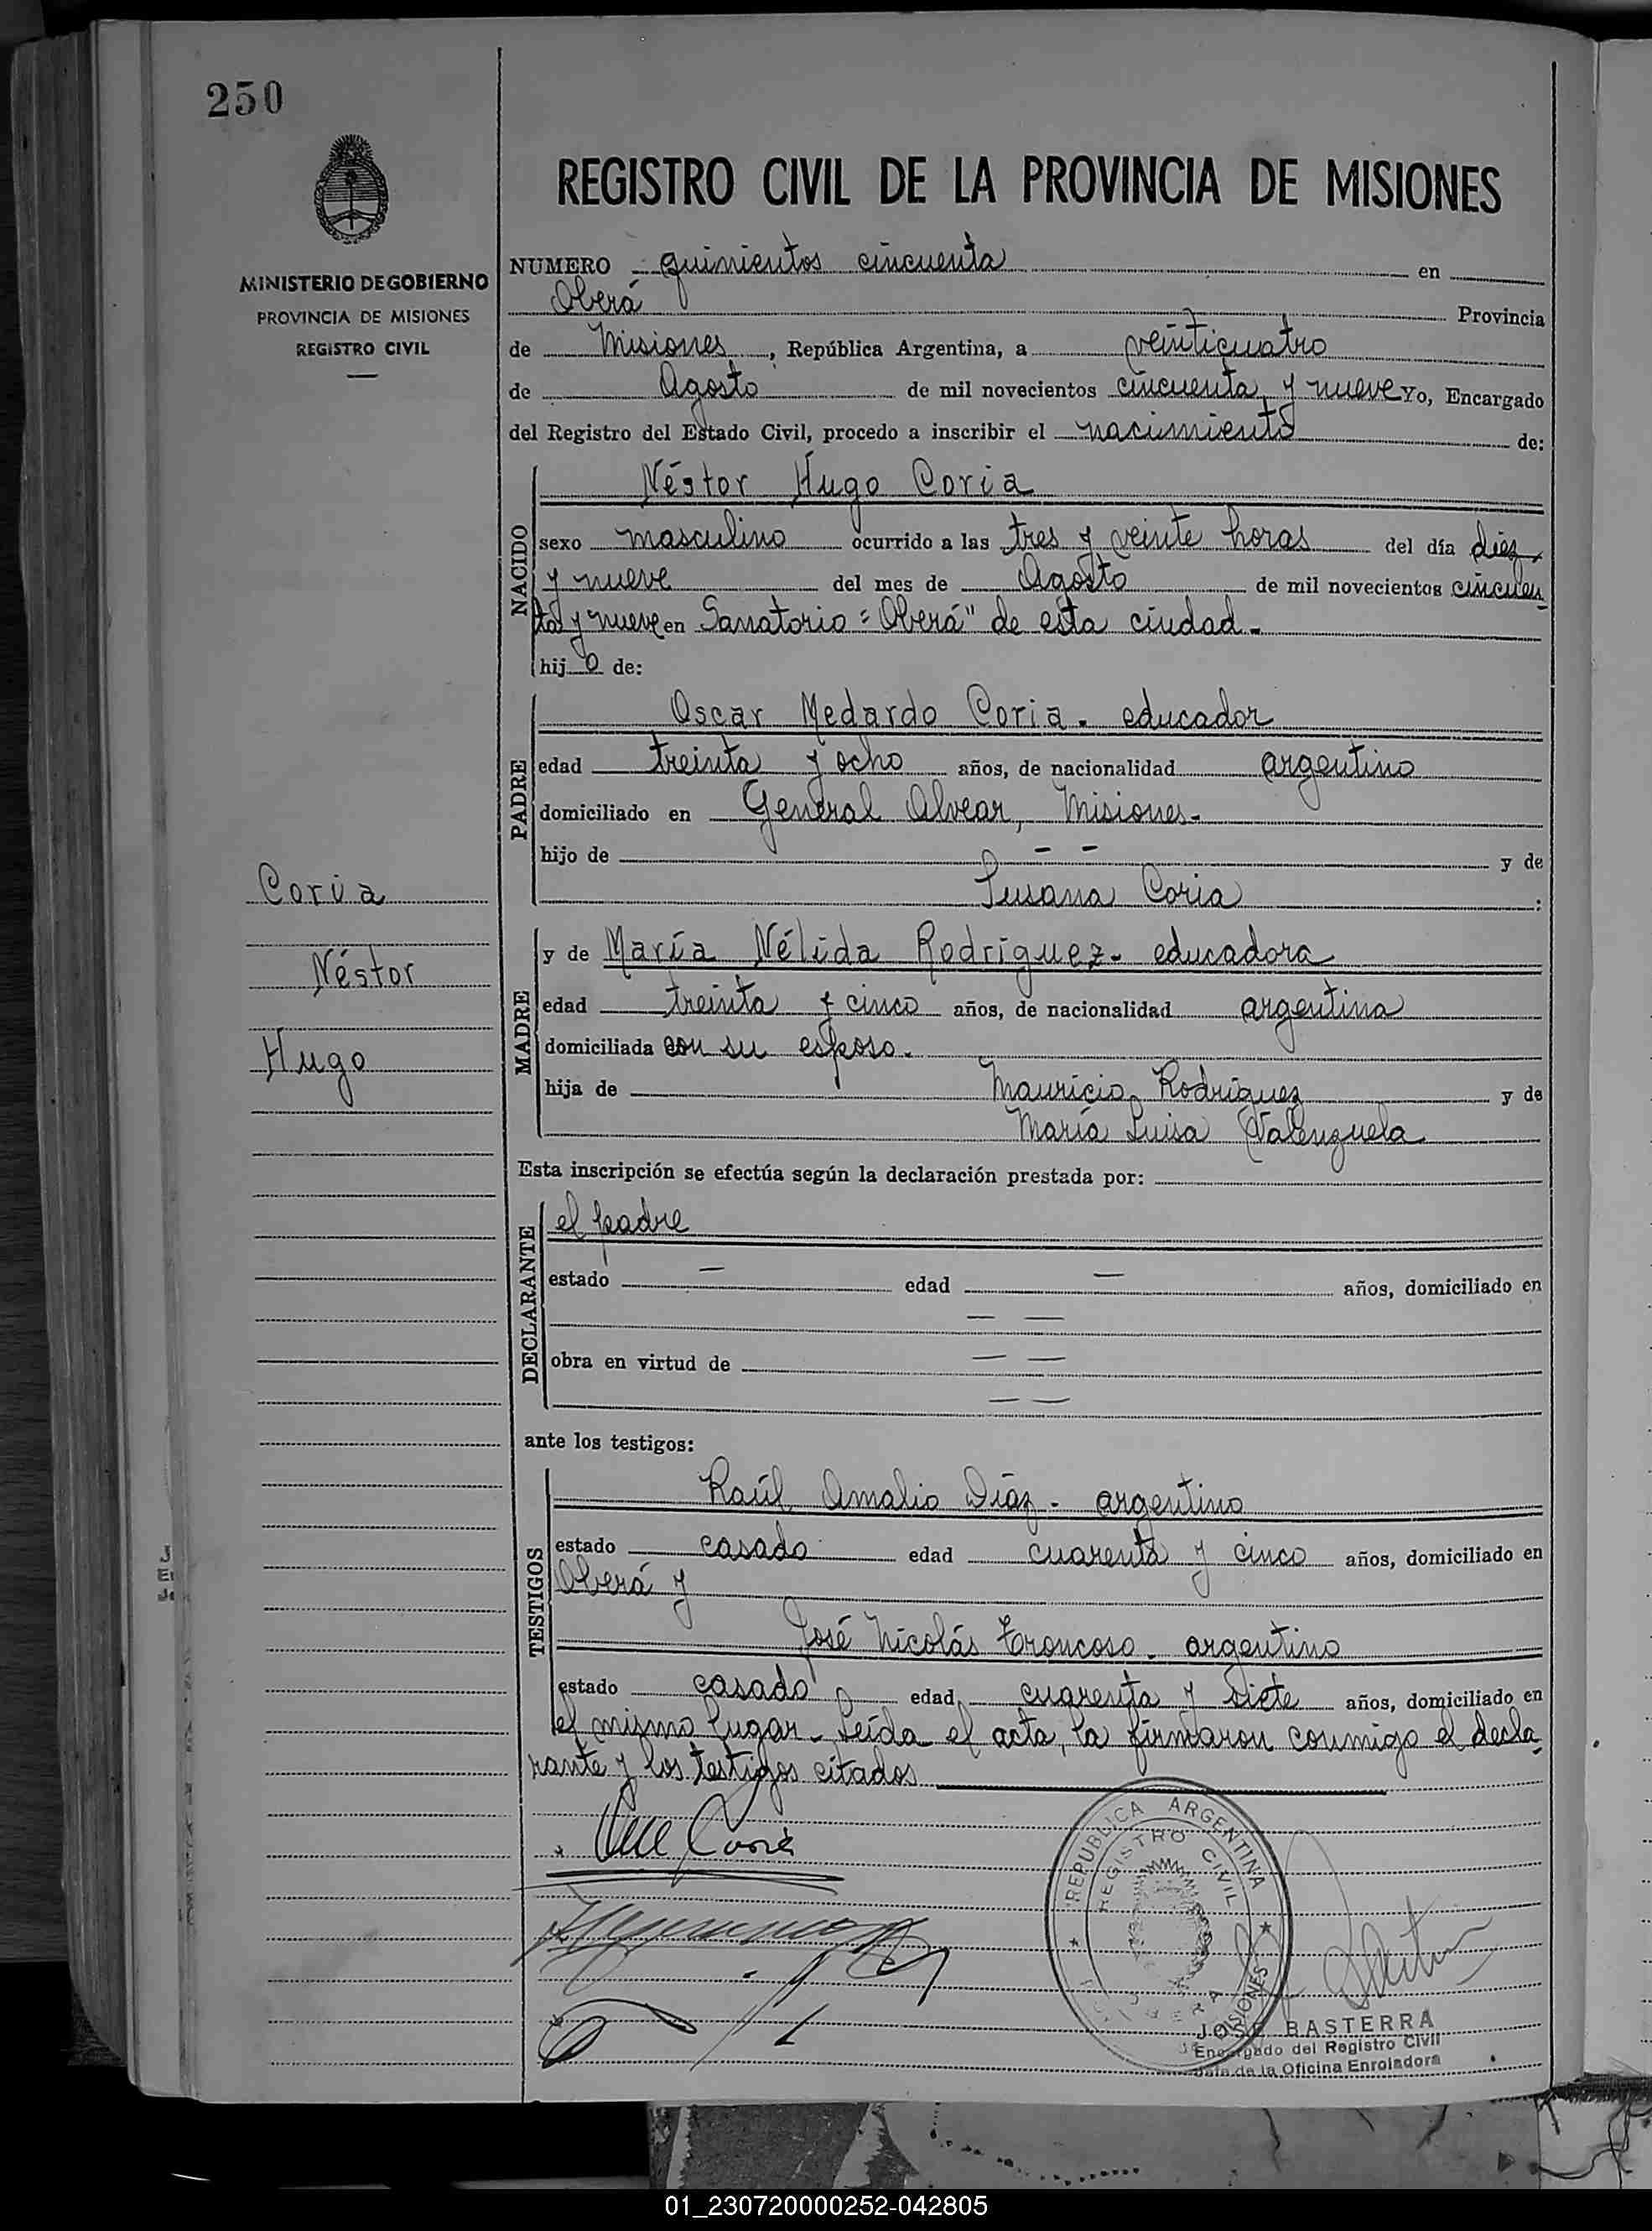 250
REGISTRO CIVIL DE LA PROVINCIA DE MISIONES
MINISTERIO DE GOBIERNO
PROVINCIA DE MISIONES
REGISTRO CIVIL
NUMERO quinientos cincuenta en
Oberá Provincia
de Misiones, República Argentina, a veinticuatro
de Agosto de mil novecientos cincuenta y nueve Yo, Encargado
del Registro del Estado Civil, procedo a inscribir el nacimiento de:
NACIDO
Néstor Hugo Coria
sexo masculino ocurrido a las tres y veinte horas del día diez
y nueve del mes de Agosto de mil novecientos cincuen
ta y nueve en Sanatorio "Oberá" de esta ciudad.
hijo de:
PADRE
Oscar Medardo Coria. educador
edad treinta y ocho años, de nacionalidad argentino
domiciliado en General Alvear, Misiones.
hijo de - - y de
Susana Coria :
Coria
Néstor
Hugo
MADRE
y de María Nélida Rodriguez. educadora
edad treinta y cinco años, de nacionalidad argentina
domiciliada con su esposo.
hija de Mauricio Rodríguez y de
María Luisa Valenzuela
Esta inscripción se efectúa según la declaración prestada por:
DECLARANTE
el padre
estado — edad — años, domiciliado en
— —
obra en virtud de — —
— —
ante los testigos:
TESTIGOS
Raúl Amalio Díaz - argentino
estado casado edad cuarenta y cinco años, domiciliado en
Oberá y
José Nicolás Troncoso. argentino
estado casado edad cuarenta y siete años, domiciliado en
el mismo lugar. Leída el acta, la firmaron conmigo el decla
rante y los testigos citados
Coria
REPUBLICA ARGENTINA
REGISTRO CIVIL
OBERA
MISIONES
JOSE BASTERRA
Encargado del Registro Civil
Jefe de la Oficina Enroladora
01_230720000252-042805